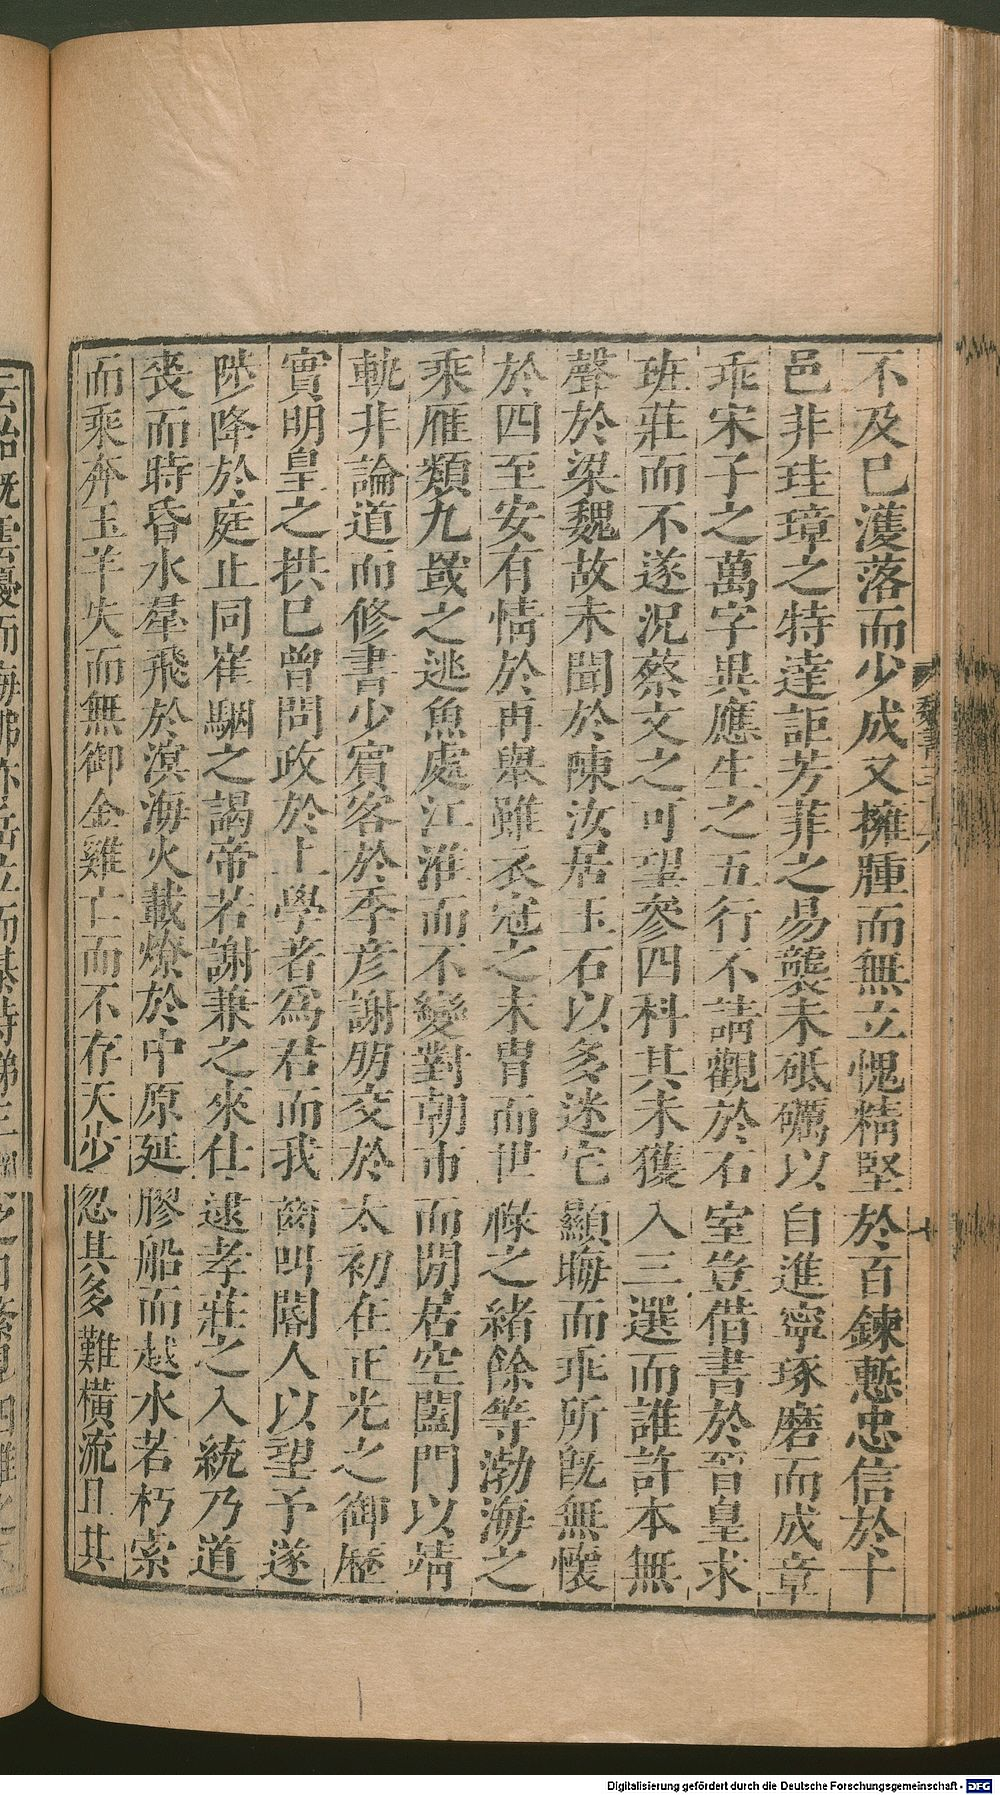 不及已濩落而少成又擁腫而無立愧精堅於百鍊慙忠信於十
邑非珪璋之特達詎芳菲之易襲未砥礪以自進寧琢磨而成章
乖宋子之萬字異應生之五行不請觀於石室豈借書於晉皇求
班莊而不遂況蔡文之可望參四科其未獲入三選而誰許本無
聲於梁魏故未聞於陳汝居玉石以多迷宅顯晦而乖所旣無懷
於四至安有情於再舉雖衣冠之末冑而世祿之緒餘等渤海之
乘雁類九罭之逃魚處江淮而不變對朝市而閒居空闔門以靖
軌非論道而修書少賓客於季彥謝朋交於太初在正光之御歷
實明皇之拱已曾問政於上學者爲君而我齒叫閽人以望予遂
陟降於庭止同崔駰之謁帝若謝兼之來仕逮孝莊之入統乃道
喪而時昏水羣飛於溟海火載燎於中原延膠船而越水若朽索
而乘奔玉羊失而無御金雞亡而不存天步忽其多難橫流且其
魏書
Digitalisierung gefördert durch die Deutsche Forschungsgemeinschaft - DFG